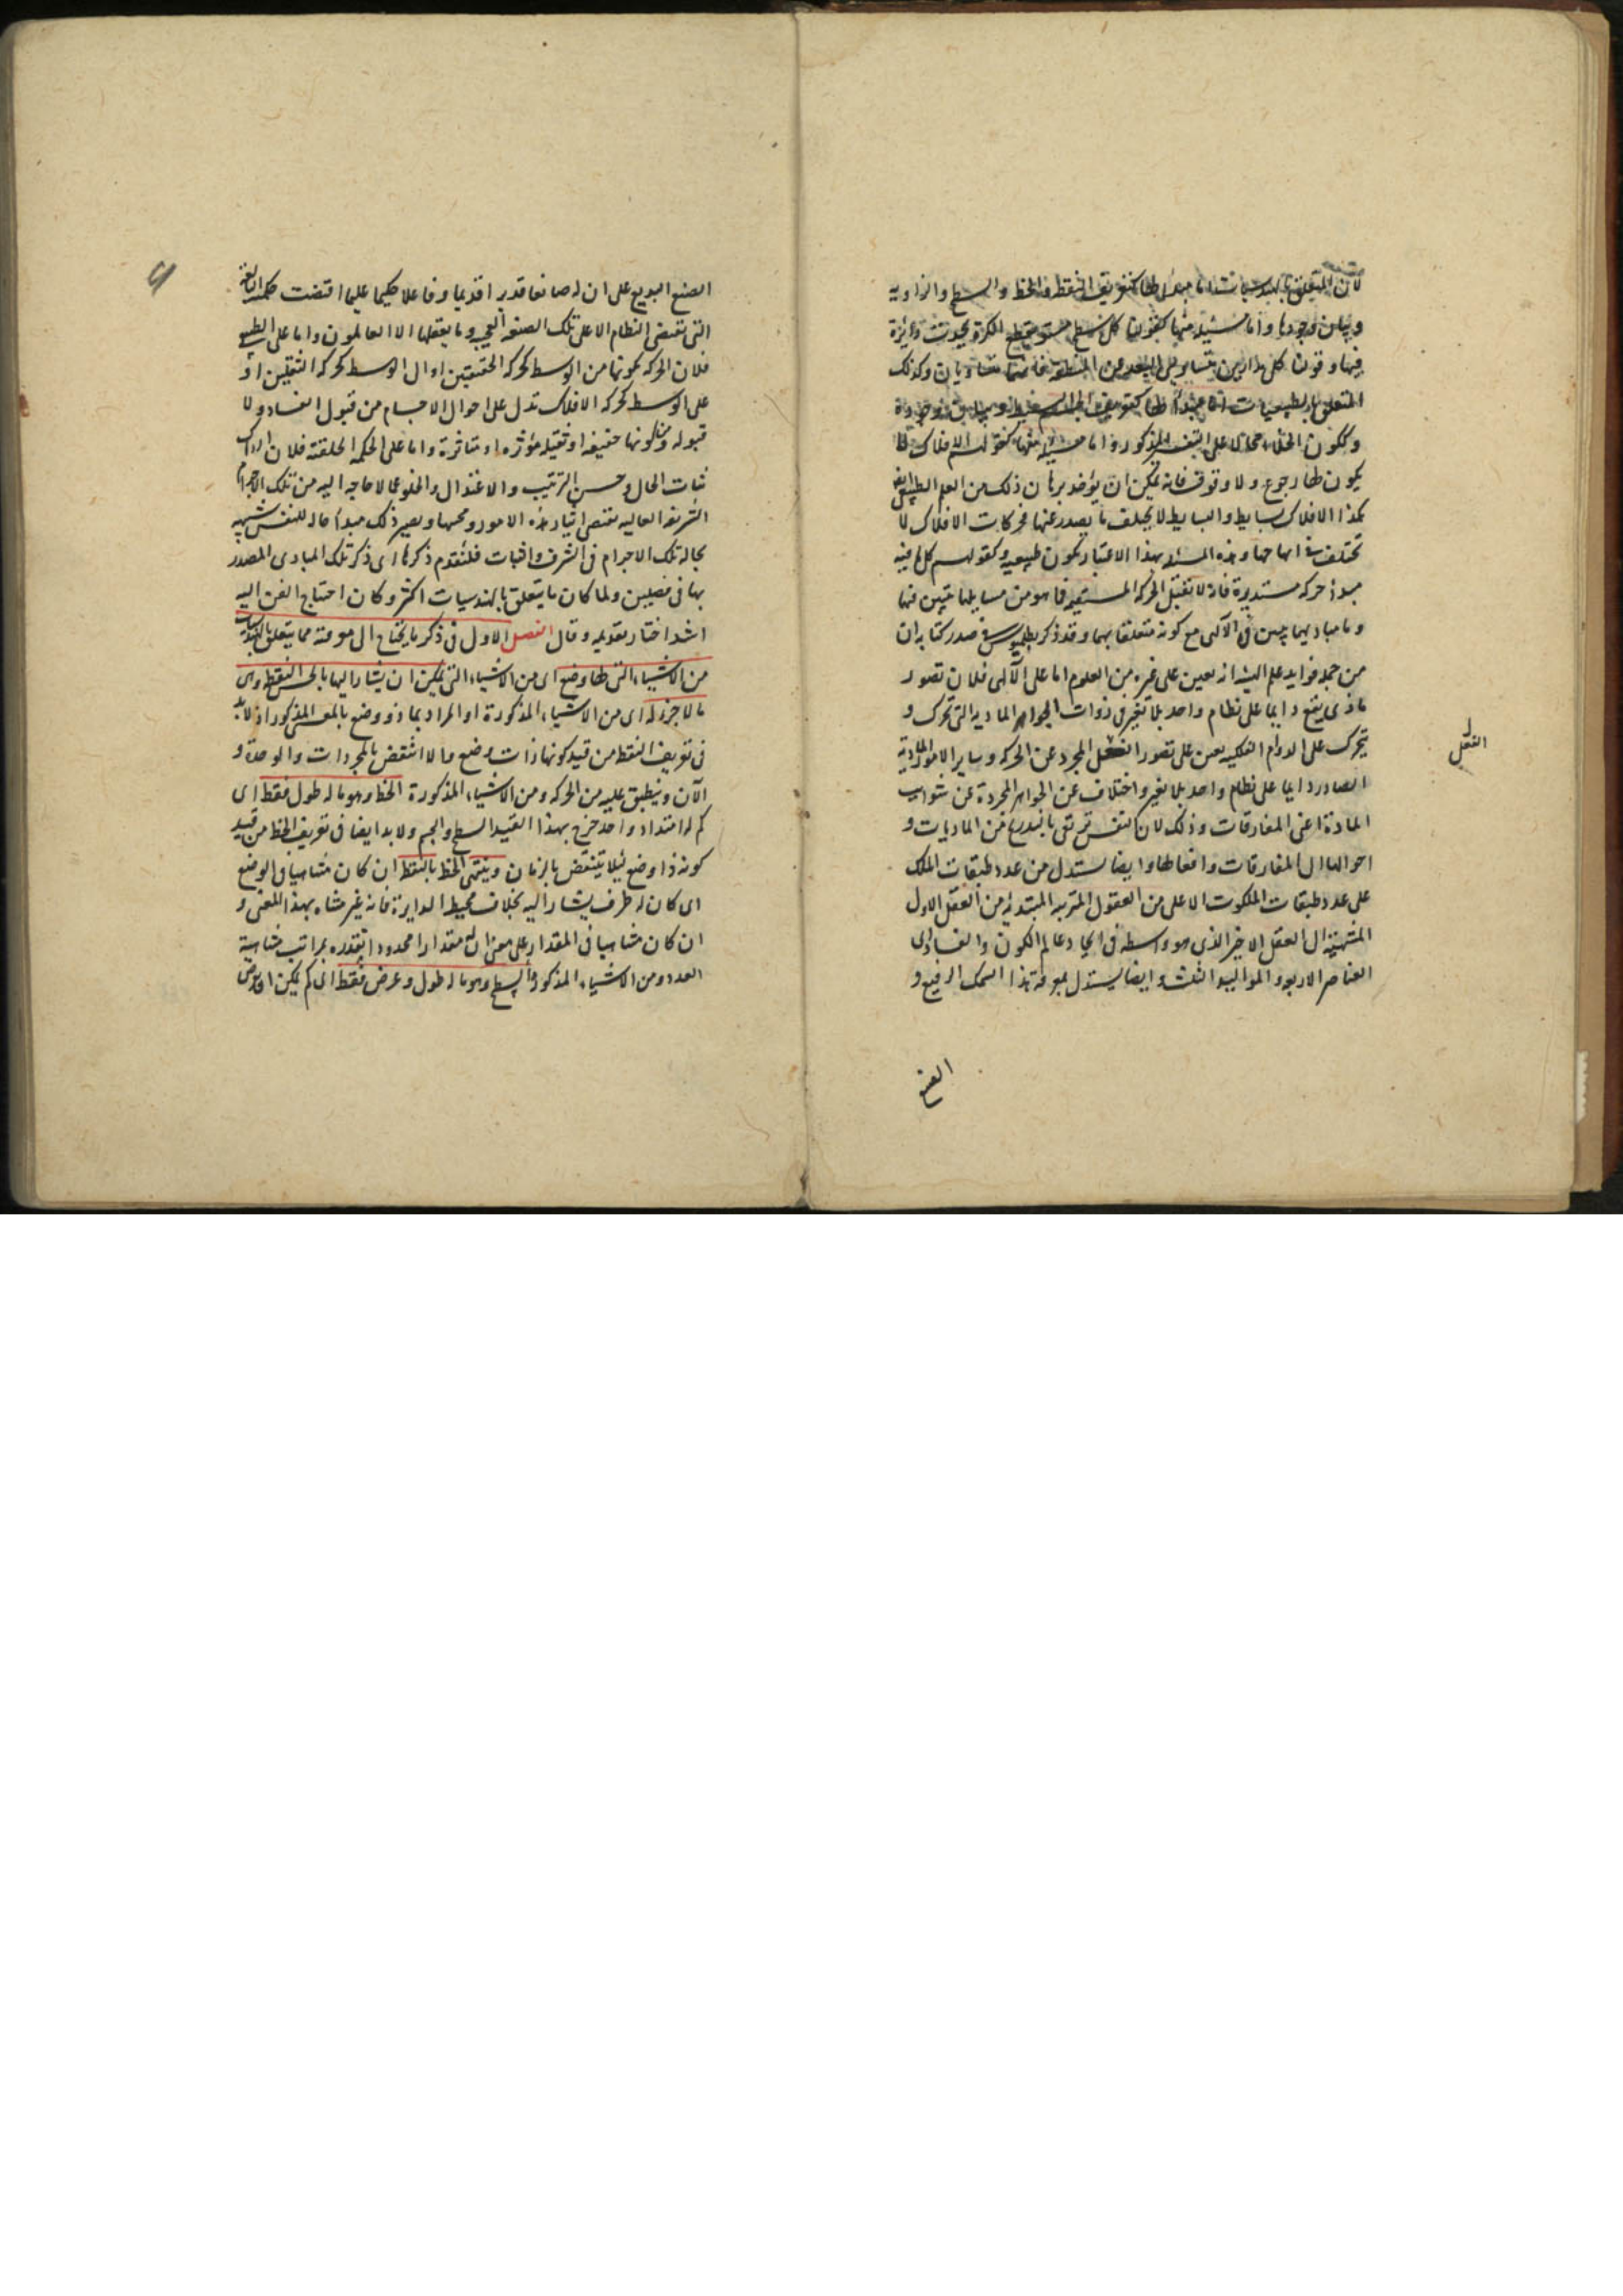 لان المتعلق بالهندسيات اما مبدأ لها كتعريف النقطة والخط والسطح والزاوية
وبيان وجودها واما مسئلة منها كقولنا كل سطح مستو يقطع الكرة يحدث دائرة
فيها وقولنا كل مدارين يتساوى البعد من المنطقة فهما متساويان وكذلك
المتعلق بالطبيعيات اما مبدأ لها كتعريف الجسم
وككون الخلاء محالا على المذكور واما مسئلة منها كقولهم الافلاك لا
يكون لها رجوع ولا وقوف فانه يمكن ان يؤخذ برهان ذلك من العلم الطبيعى
هكذا الافلاك بسايط والبسايط لا يختلف ما يصدر عنها فحركات الافلاك لا
تختلف فى انهاجها وهذه المسئلة بهذا الاعتبار تكون طبيعية وكقولهم كل ما فيه
مبدأ حركة مستديرة فانه لا تقبل الحركة المستقيمة فا هو من مسايلها تبين فيها
وما مباديهما تبين فى الآلهى مع كونه متعلقا بهما وقد ذكر بطلميوس فى صدر كتابه ان
من جملة فوايد علم الهيئة انه يعين على غيره من العلوم اما على الآلهى فلان تصور
ما ذى يقع دايما على نظام واحد بلا تغير فى ذوات الجواهر المادية التى تحرك و
تتحرك على الدوام الفلكية يعين على تصور الفعل المجرد عن الحركة وساير الامور المادية
الصادر دايما على نظام واحد بلا تغير واختلاف عن الجواهر المجردة عن شوايب
المادة اعنى المفارقات وذلك لان النفس ترتقى بالتدريج من الماديات و
احوالها الى المفارقات وافعالها وايضا يستدل من عدد طبقات الملك
على عدد طبقات الملكوت الاعلى من العقول المترتبة المبتدئة من العقل الاول
المنتهية الى العقل الاخير الذى هو واسطة فى ايجاد عالم الكون والفساد اى
العناصر الاربعة والمواليد الثلث وايضا يستدل بمعرفة هذا السمك الرفيع و
الصنع
الفعل
الصنع البديع على ان له صانعا قديرا قديما وفاعلا حكيما عليما اقتضت حكمته البالغة
التى تقتضى النظام الاعلى تلك الصنعة العجيبة وما يعقلها الا العالمون واما على الطبيعى
فلان الحركة بكونها من الوسط كحركة الخفيفين او الى الوسط كحركة الثقيلين او
على الوسط كحركة الافلاك تدل على احوال الاجسام من قبول الفساد ولا
قبوله ومن كونها خفيفة او ثقيلة مؤثرة او متاثرة واما على الحكمة الخلقية فلان ادراك
ثبات الحال وحسن الترتيب والاعتدال والخلو عما لا حاجة اليه من تلك الاجرام
الشريفة العالية يقتضى ايثار هذه الامور ومحبتها ويصير ذلك مبدأ حالة للنفس شبيهة
بحالة تلك الاجرام فى الشرف والثبات فلنقدم ذكرها اى ذكر تلك المبادى المصدر
بها فى فصلين ولما كان ما يتعلق بالهندسيات اكثر وكان احتياج الفن اليه
اشد اختار تقديمه وقال الفصل الاول فى ذكر ما يحتاج الى معرفته مما يتعلق بالهندسيات
من الاشياء التى لها وضع اى من الاشياء التى يمكن ان يشار اليها بالحس النقطة وهى
ما لا جزء له اى من الاشياء المذكورة او المراد بما ذو وضع بالمعنى المذكور اذ لا بد
فى تعريف النقطة من قيد كونها ذات وضع والا انتقض بالمجردات والوحدة و
الآن وينطبق عليه من الحركة ومن الاشياء المذكورة الخط وهو ما له طول فقط اى
كم له امتداد واحد خرج بهذا القيد السطح والجسم ولا بد ايضا فى تعريف الخط من قيد
كونه ذا وضع لئلا ينتقض بالزمان وينتهى الخط بالنقطة ان كان متناهيا فى الوضع
اى كان له طرف يشار اليه بخلاف محيط الدايرة فانه غير متناه بهذا المعنى و
ان كان متناهيا فى المقدار على معنى ان له مقدارا محدودا يتقدر بمراتب متناهية
العدد ومن الاشياء المذكورة السطح وهو ما له طول وعرض فقط اى كم يمكن ان يفرض